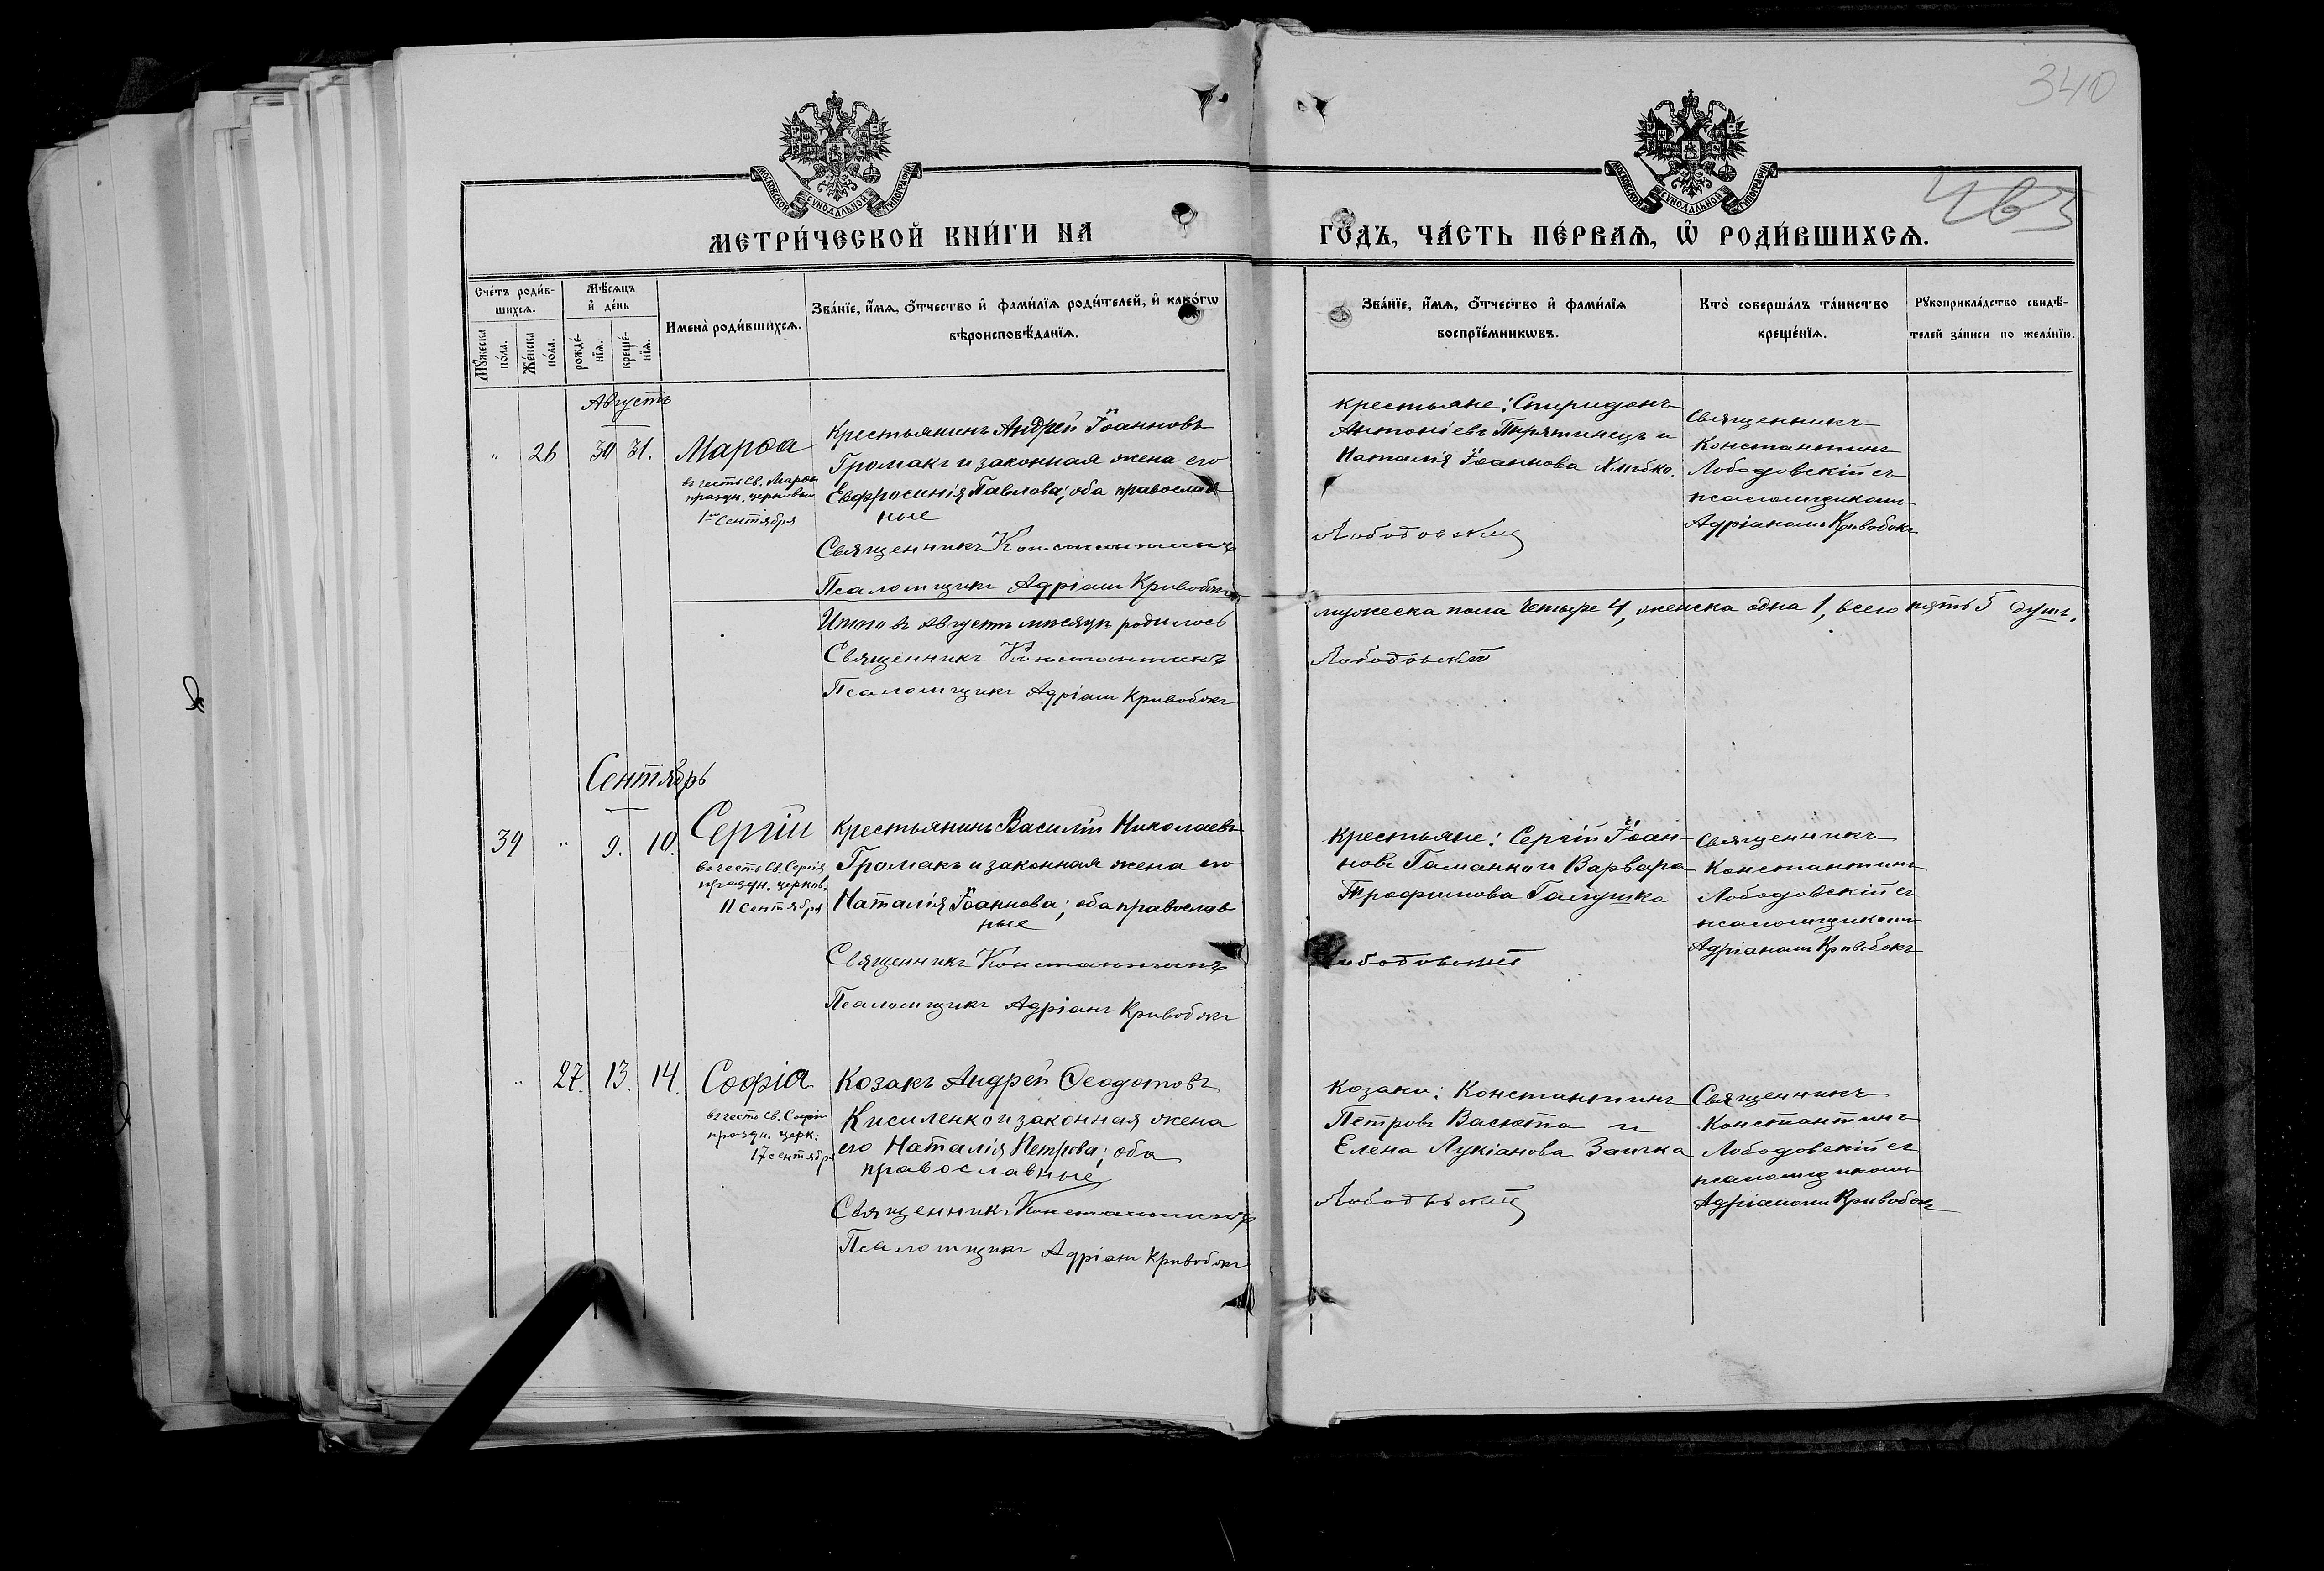 340
463
МОСКОВСКОЙ СѴНОДАЛЬНОЙ ТИПОГРАФІИ
МОСКОВСКОЙ СѴНОДАЛЬНОЙ ТИПОГРАФІИ
МЕТРИ́ЧЕСКОЙ КНИ́ГИ НА
ГО́ДЪ, ЧА́СТЬ ПЕ́РВАѦ, Ѡ҆ РОДИ́ВШИХСѦ.
Сче́тъ роди́в-
шихсѧ.
Мꙋ́жеска
по́ла.
Же́нска
по́ла.
Мѣ́сѧцъ
и҆ де́нь
рожде́-
нїѧ.
креще́-
нїѧ.
Имена̀ роди́вшихсѧ.
Зва́нїе, и҆́мѧ, ѻ҆́тчество и҆ фами́лїѧ роди́телей, и҆ како́гѡ
вѣроисповѣ́данїѧ.
Зва́нїе, и҆́мѧ, ѻ҆́тчество и҆ фами́лїѧ
воспрїе́мникѡвъ.
Кто̀ соверша́лъ та́инство
креще́нїѧ.
Рꙋкоприкла́дство свидѣ́-
телей за́писи по жела́нїю.
Августъ
" 26 30 31.
Марѳа
въ честь Св. Марѳы
праздн. церковью
1го Сентября
Крестьянинъ Андрей Іоанновъ
Громакъ и законная жена его
Евфросинія Павлова; оба православ
ные
Священникъ Константинъ
Псаломщикъ Адріанъ Кривобокъ
крестьяне: Спиридонъ
Антоніевъ Пирятинецъ и
Наталія Іоаннова
Лободовскій
Священникъ
Константинъ
Лободовскій съ
псаломщикомъ
Адріаномъ Кривобокъ
Итого въ Августѣ мѣсяцѣ родилось
мужеска пола четыре 4, женска одна 1, всего пять 5 душъ.
Священникъ Константинъ
Лободовскій
Псаломщикъ Адріанъ Кривобокъ
Сентябрь
39 " 9. 10.
Сергій
въ честь Св. Сергія
праздн. церков.
11 Сентября
Крестьянинъ Василій Николаевъ
Громакъ и законная жена его
Наталія Іоаннова; оба православ
ные
Священникъ Константинъ
Псаломщикъ Адріанъ Кривобокъ
Крестьяне: Сергій Іоан-
новъ Гаманко и Варвара
Трофимова Галушка
Лободовскій
Священникъ
Константинъ
Лободовскій съ
псаломщикомъ
Адріаномъ Кривобокъ
" 27. 13. 14.
Софія
въ честь Св. Софіи
праздн. церк.
17 сентября
Козакъ Андрей Ѳеодотовъ
Кисиленко и законная жена
его Наталія Петрова; оба
православные
Священникъ Константинъ
Псаломщикъ Адріанъ Кривобокъ
Козаки: Константинъ
Петровъ Васюта и
Елена Лукіанова Заичка
Лободовскій
Священникъ
Константинъ
Лободовскій съ
псаломщикомъ
Адріаномъ Кривобокъ